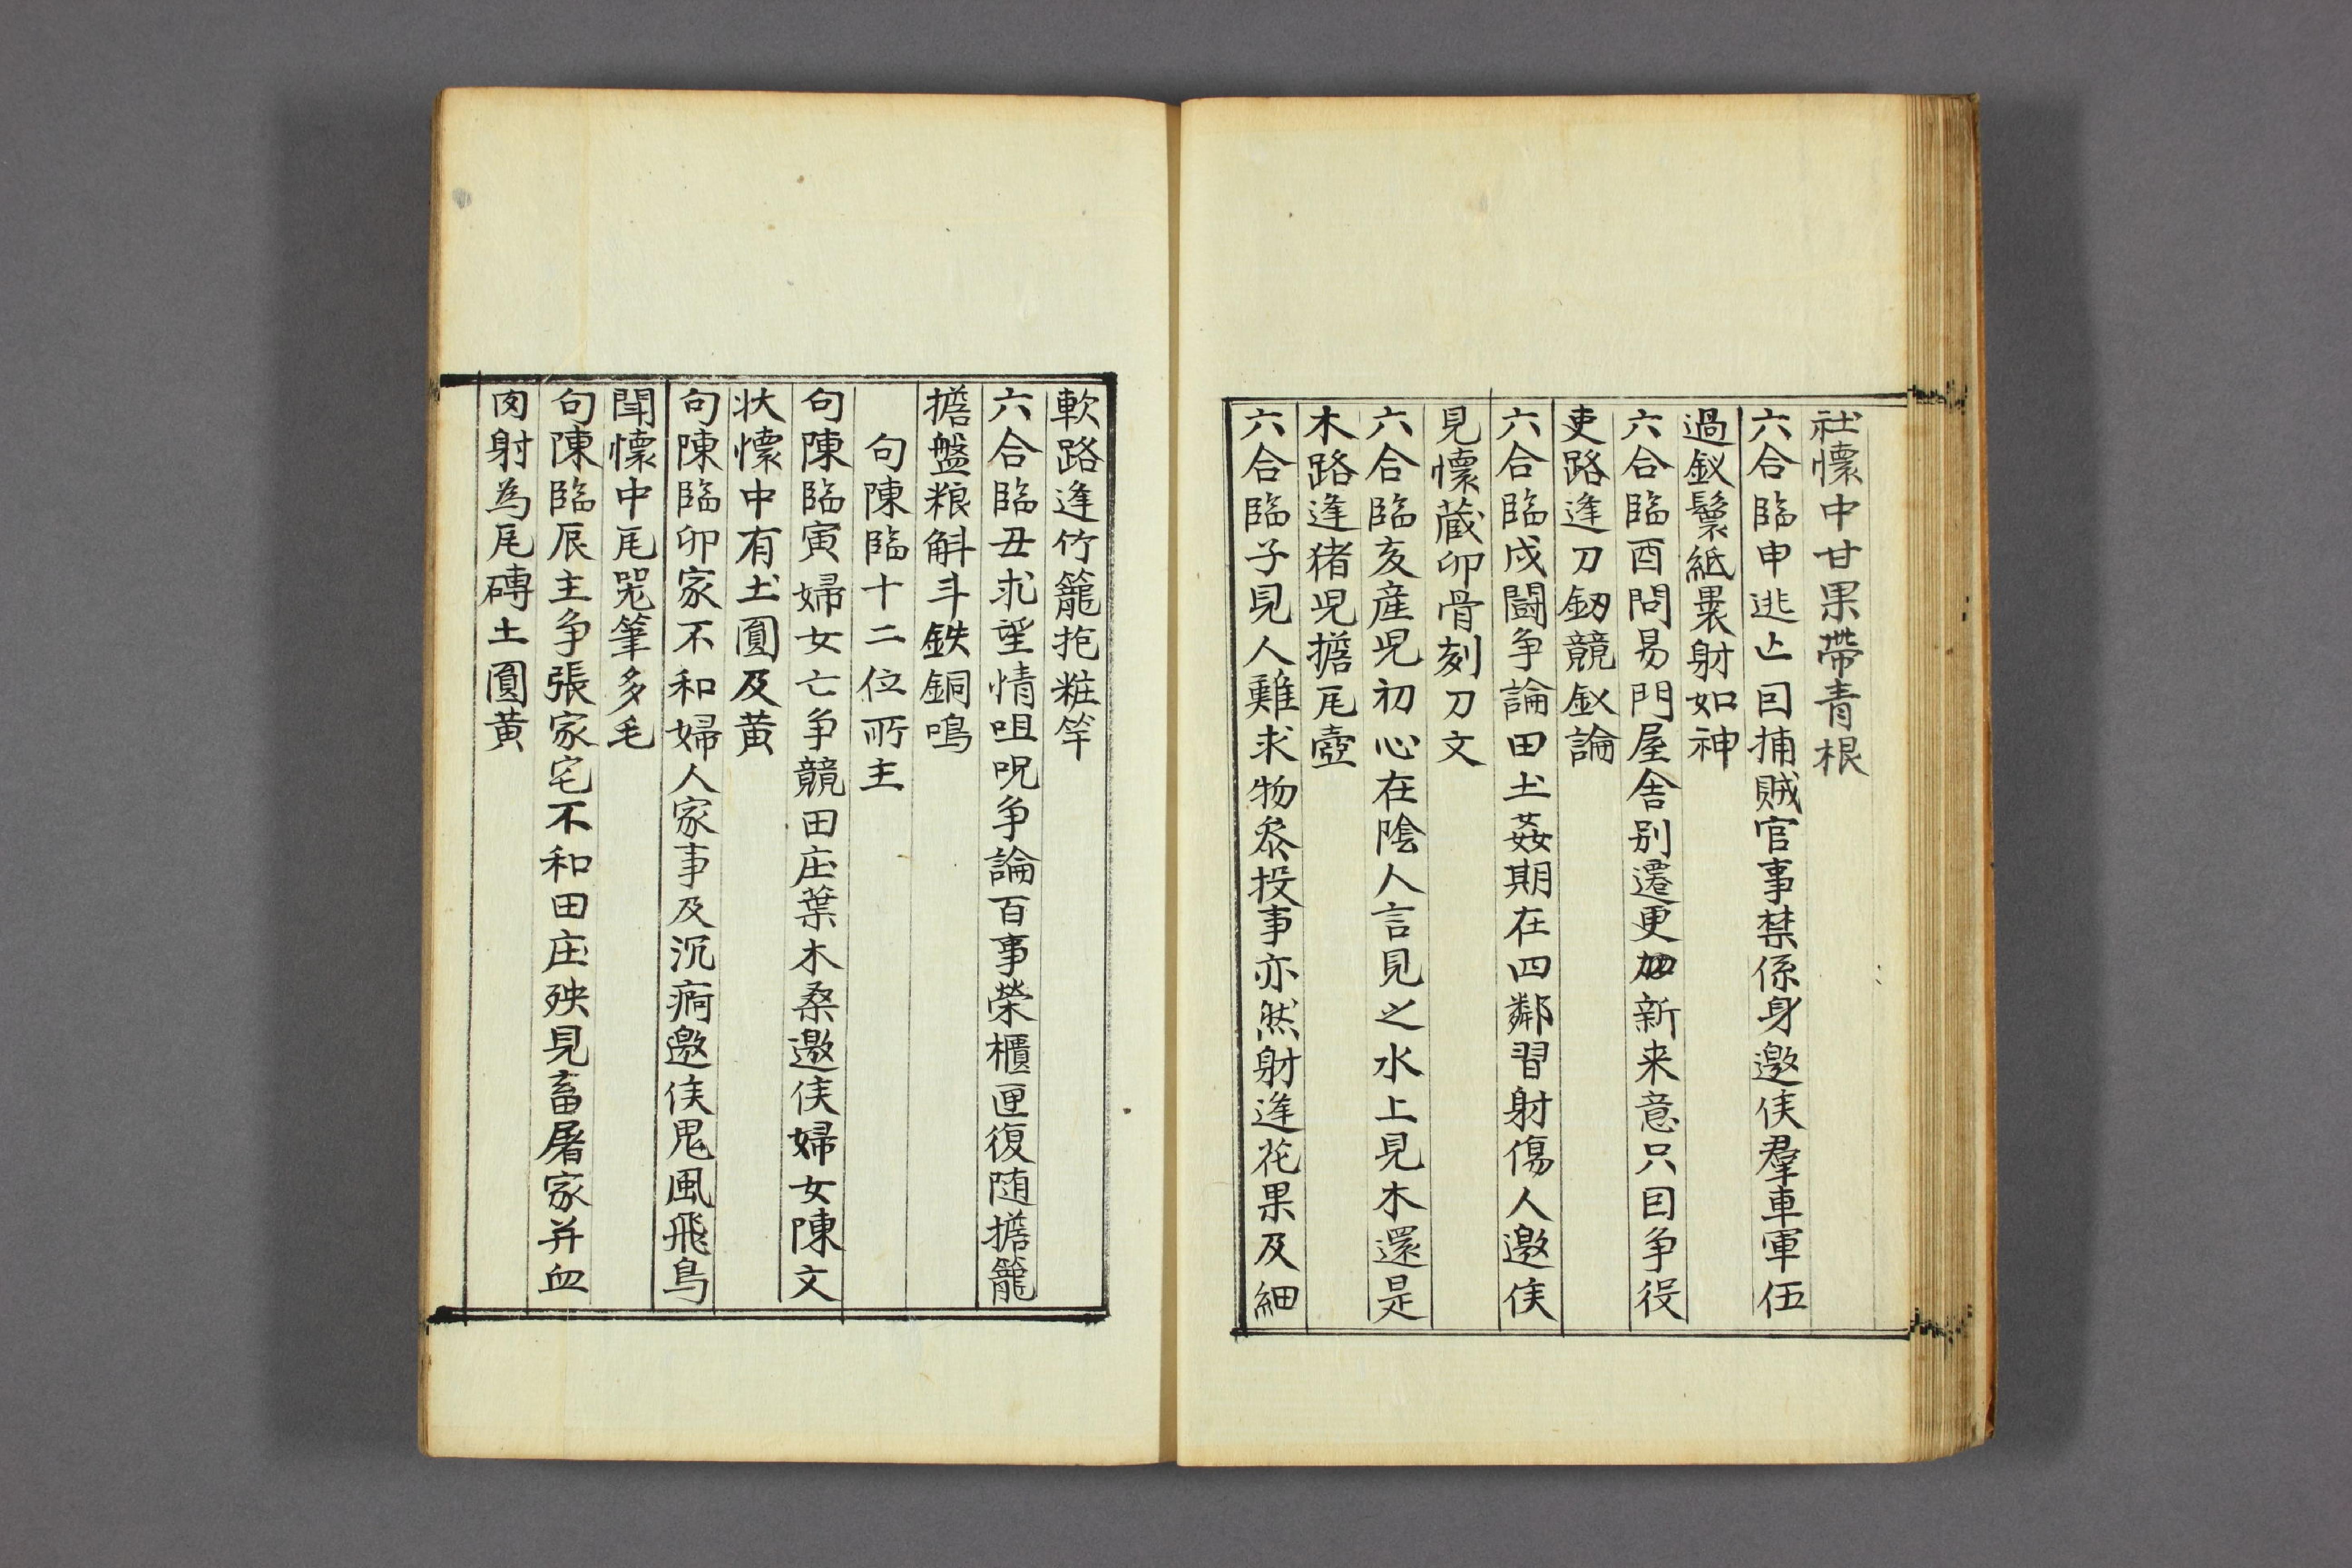 社懷中甘果帶青根
六合臨申逃亡囙捕賊官事禁係身邀俟羣車軍伍
過釵鬟紙裹射如神
六合臨酉問易門屋舍别遷更加新来意只囙争役
吏路逢刀釰競釵論
六合臨戌鬪争論田土姦期在四鄰習射傷人邀俟
見懷蔵卯骨刻刀文
六合臨亥産児初心在陰人言見之水上見木還是
木路逢猪児擔瓦壺
六合臨子見人難求物叅投事亦然射逢花果及細
軟路逢竹籠抱粧竿
六合臨丑求望情咀呪争論百事榮櫃匣復随擔籠
擔盤粮斛斗鉄銅鳴
句陳臨十二位所主
句陳臨寅婦女亡争競田庄葉木桑邀俟婦女陳文
状懷中有土圓及黄
句陳臨卯家不和婦人家事及沉痾邀俟鬼風飛鳥
閗懷中瓦咒筆多毛
句陳臨辰主争張家宅不和田庄殃見畜屠家并血
肉射為瓦磚土圓黄